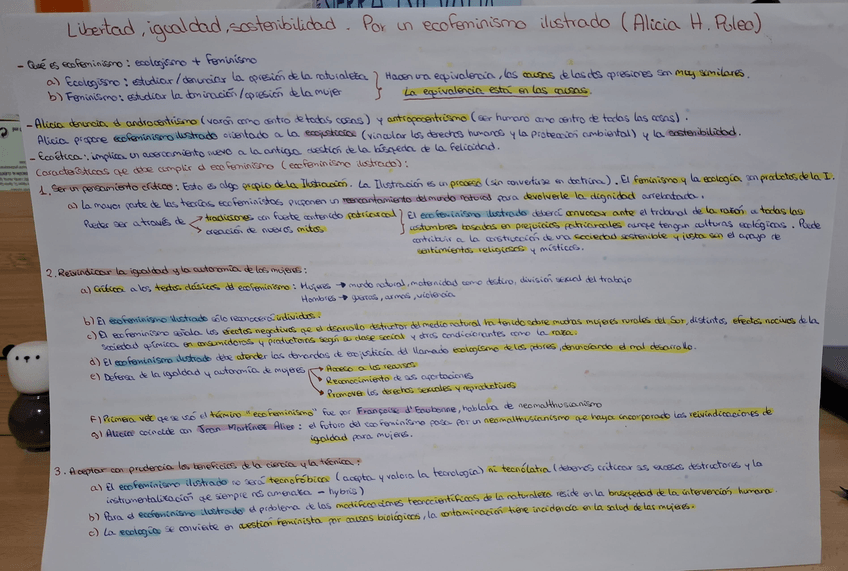 Libertad, igualdad, sostenibilidad. Por un ecofeminismo ilustrado (Alicia H. Puleo)
- Qué es ecofeminismo: ecologismo + Feminismo
a) Ecologismo: estudiar/denunciar la opresión de la naturaleza } Hacen una equivalencia, las causas de las dos opresiones son muy similares.
b) Feminismo: estudiar la dominación/opresión de la mujer } La equivalencia está en las causas.
- Alicia denuncia el androcentrismo (varón como centro de todas cosas) y antropocentrismo (ser humano como centro de todas las cosas).
Alicia propone ecofeminismo ilustrado orientado a la ecojusticia (vincular los derechos humanos y la protección ambiental) y la sostenibilidad.
- Ecoética: implica un acercamiento nuevo a la antigua cuestión de la búsqueda de la felicidad.
Características que debe cumplir el ecofeminismo (ecofeminismo ilustrado):
1. Ser un pensamiento crítico: Esto es algo propio de la Ilustración. La Ilustración es un proceso (sin convertirse en doctrina). El feminismo y la ecología son productos de la I.
a) La mayor parte de las teorías ecofeministas proponen un reencantamiento del mundo natural para devolverle la dignidad arrebatada.
Puede ser a través de → tradiciones con fuerte contenido patriarcal } El ecofeminismo ilustrado deberá convocar ante el tribunal de la razón a todas las
→ creación de nuevos mitos. costumbres basadas en prejuicios patriarcales aunque tengan culturas ecológicas. Puede
contribuir a la construcción de una sociedad sostenible y justa sin el apoyo de
sentimientos religiosos y místicos.
2. Reivindicar la igualdad y la autonomía de las mujeres:
a) Crítica a los textos clásicos del ecofeminismo: Mujeres → mundo natural, maternidad como destino, división sexual del trabajo
Hombres → guerras, armas, violencia
b) El ecofeminismo ilustrado sólo reconocerá individuos.
c) El ecofeminismo señala los efectos negativos que el desarrollo destructor del medio natural ha tenido sobre muchas mujeres rurales del Sur, distintos efectos nocivos de la
sociedad química en consumidoras y productoras según su clase social y otros condicionantes como la raza.
d) El ecofeminismo ilustrado debe atender las demandas de ecojusticia del llamado ecologismo de los pobres, denunciando el mal desarrollo.
e) Defensa de la igualdad y autonomía de mujeres → Acceso a los recursos
→ Reconocimiento de sus aportaciones
→ Promover los derechos sexuales y reproductivos
F) Primera vez que se usó el término "ecofeminismo" fue por Françoise d'Eaubonne, hablaba de neomalthusianismo
g) Alicia coincide con Joan Martínez Alier: el futuro del ecofeminismo pasa por un neomalthusianismo que haya incorporado las reivindicaciones de
igualdad para mujeres.
3. Aceptar con prudencia los beneficios de la ciencia y la técnica:
a) El ecofeminismo ilustrado no será tecnofóbico (acepta y valora la tecnología) ni tecnólatra (debemos criticar sus excesos destructores y la
instrumentalización que siempre nos amenaza - hybris)
b) Para el ecofeminismo ilustrado el problema de las modificaciones tecnocientíficas de la naturaleza reside en la búsqueda de la intervención humana.
c) La ecología se convierte en cuestión feminista por causas biológicas, la contaminación tiene incidencia en la salud de las mujeres.